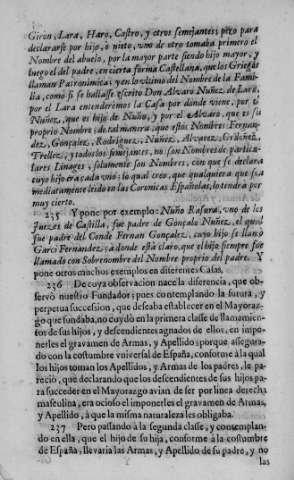 Giron, Lara, Haro, Castro, y otros semejantes; pero para
declararse por hijo, ò nieto, vno de otro tomaba primero el
Nombre del abuelo, por la mayor parte siendo hijo mayor, y
luego el del padre, en cierta forma Castellana, que los Griegos
llaman Patronimica: y en lo vltimo del Nombre de la Fami-
lia, como si se hallasse escrito Don Alvaro Nuñez de Lara,
por el Lara entenderèmos la Casa por donde viene, por el
Nuñez, que es hijo de Nuño, y por el Alvaro, que es su
proprio Nombre; de tal manera, que estos Nombres Fernan-
dez, Gonçalez, Rodriguez, Nuñez, Alvarez, Ordoñez,
Tellez, y todos los semejantes, no son Nombres de particu-
lares Linages, solamente son Nombres, con que se declara
cuyo hijo era cada vno; lo qual creo, que qualquiera que sea
mediatamente leìdo en las Coronicas Españolas, lo tendrà por
muy cierto.
235 Y pone por exemplo: Nuño Rasura, vno de los
Juezes de Castilla, fue padre de Gonçalo Nuñez, el qual
fue padre del Conde Fernan Gonçalez, cuyo hijo se llamò
Garci Fernandez; à donde està claro, que el hijo siempre fue
llamado con Sobrenombre del Nombre proprio del padre. Y
pone otros muchos exemplos en diferentes Casas.
236 De cuya observacion nace la diferencia, que ob-
servò nuestro Fundador; pues contemplando la futura, y
perpetua succession, que deseaba establecer en el Mayoraz-
go que fundaba, no cuydò en la primera classe de llamamien-
tos de sus hijos, y descendientes agnados de ellos, en impo-
nerles el gravamen de Armas, y Apellido; porque assegura-
do con la costumbre vniversal de España, conforme à la qual
los hijos toman los Apellidos, y Armas de los padres, le pa-
reciò, que declarando que los descendientes de sus hijos pa-
ra succeder en el Mayorazgo avian de ser por linea derecha
masculina, era ocioso el imponerles el gravamen de Armas,
y Apellido, à que la misma naturaleza les obligaba.
237 Pero passando à la segunda classe, y contemplan-
do en ella, que el hijo de su hija, conforme à la costumbre
de España, llevaria las Armas, y Apellido de su padre, y no
las